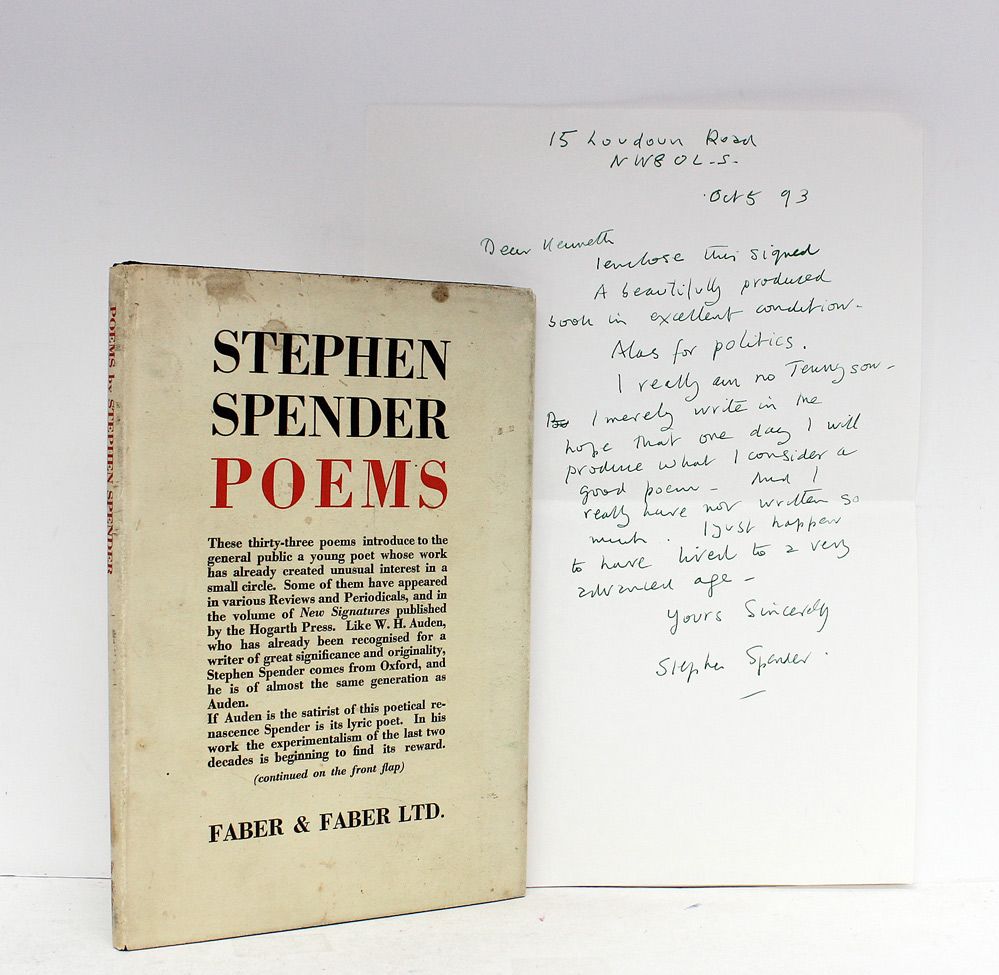 POEMS by STEPHEN SPENDER
STEPHEN
SPENDER
POEMS
These thirty-three poems introduce to the
general public a young poet whose work
has already created unusual interest in a
small circle. Some of them have appeared
in various Reviews and Periodicals, and in
the volume of New Signatures published
by the Hogarth Press. Like W. H. Auden,
who has already been recognised for a
writer of great significance and originality,
Stephen Spender comes from Oxford, and
he is of almost the same generation as
Auden.
If Auden is the satirist of this poetical re-
nascence Spender is its lyric poet. In his
work the experimentalism of the last two
decades is beginning to find its reward.
(continued on the front flap)
FABER & FABER LTD.
15 Loudoun Road
NW8 0LS
Oct 5 93
Dear Kenneth
I enclose this signed
A beautifully produced
book in excellent condition -
Alas for politics.
I really am no Tennyson -
I merely write in the
hope that one day I will
produce what I consider a
good poem - And I
really have not written so
much. I just happen
to have lived to a very
advanced age -
Yours Sincerely
Stephen Spender.